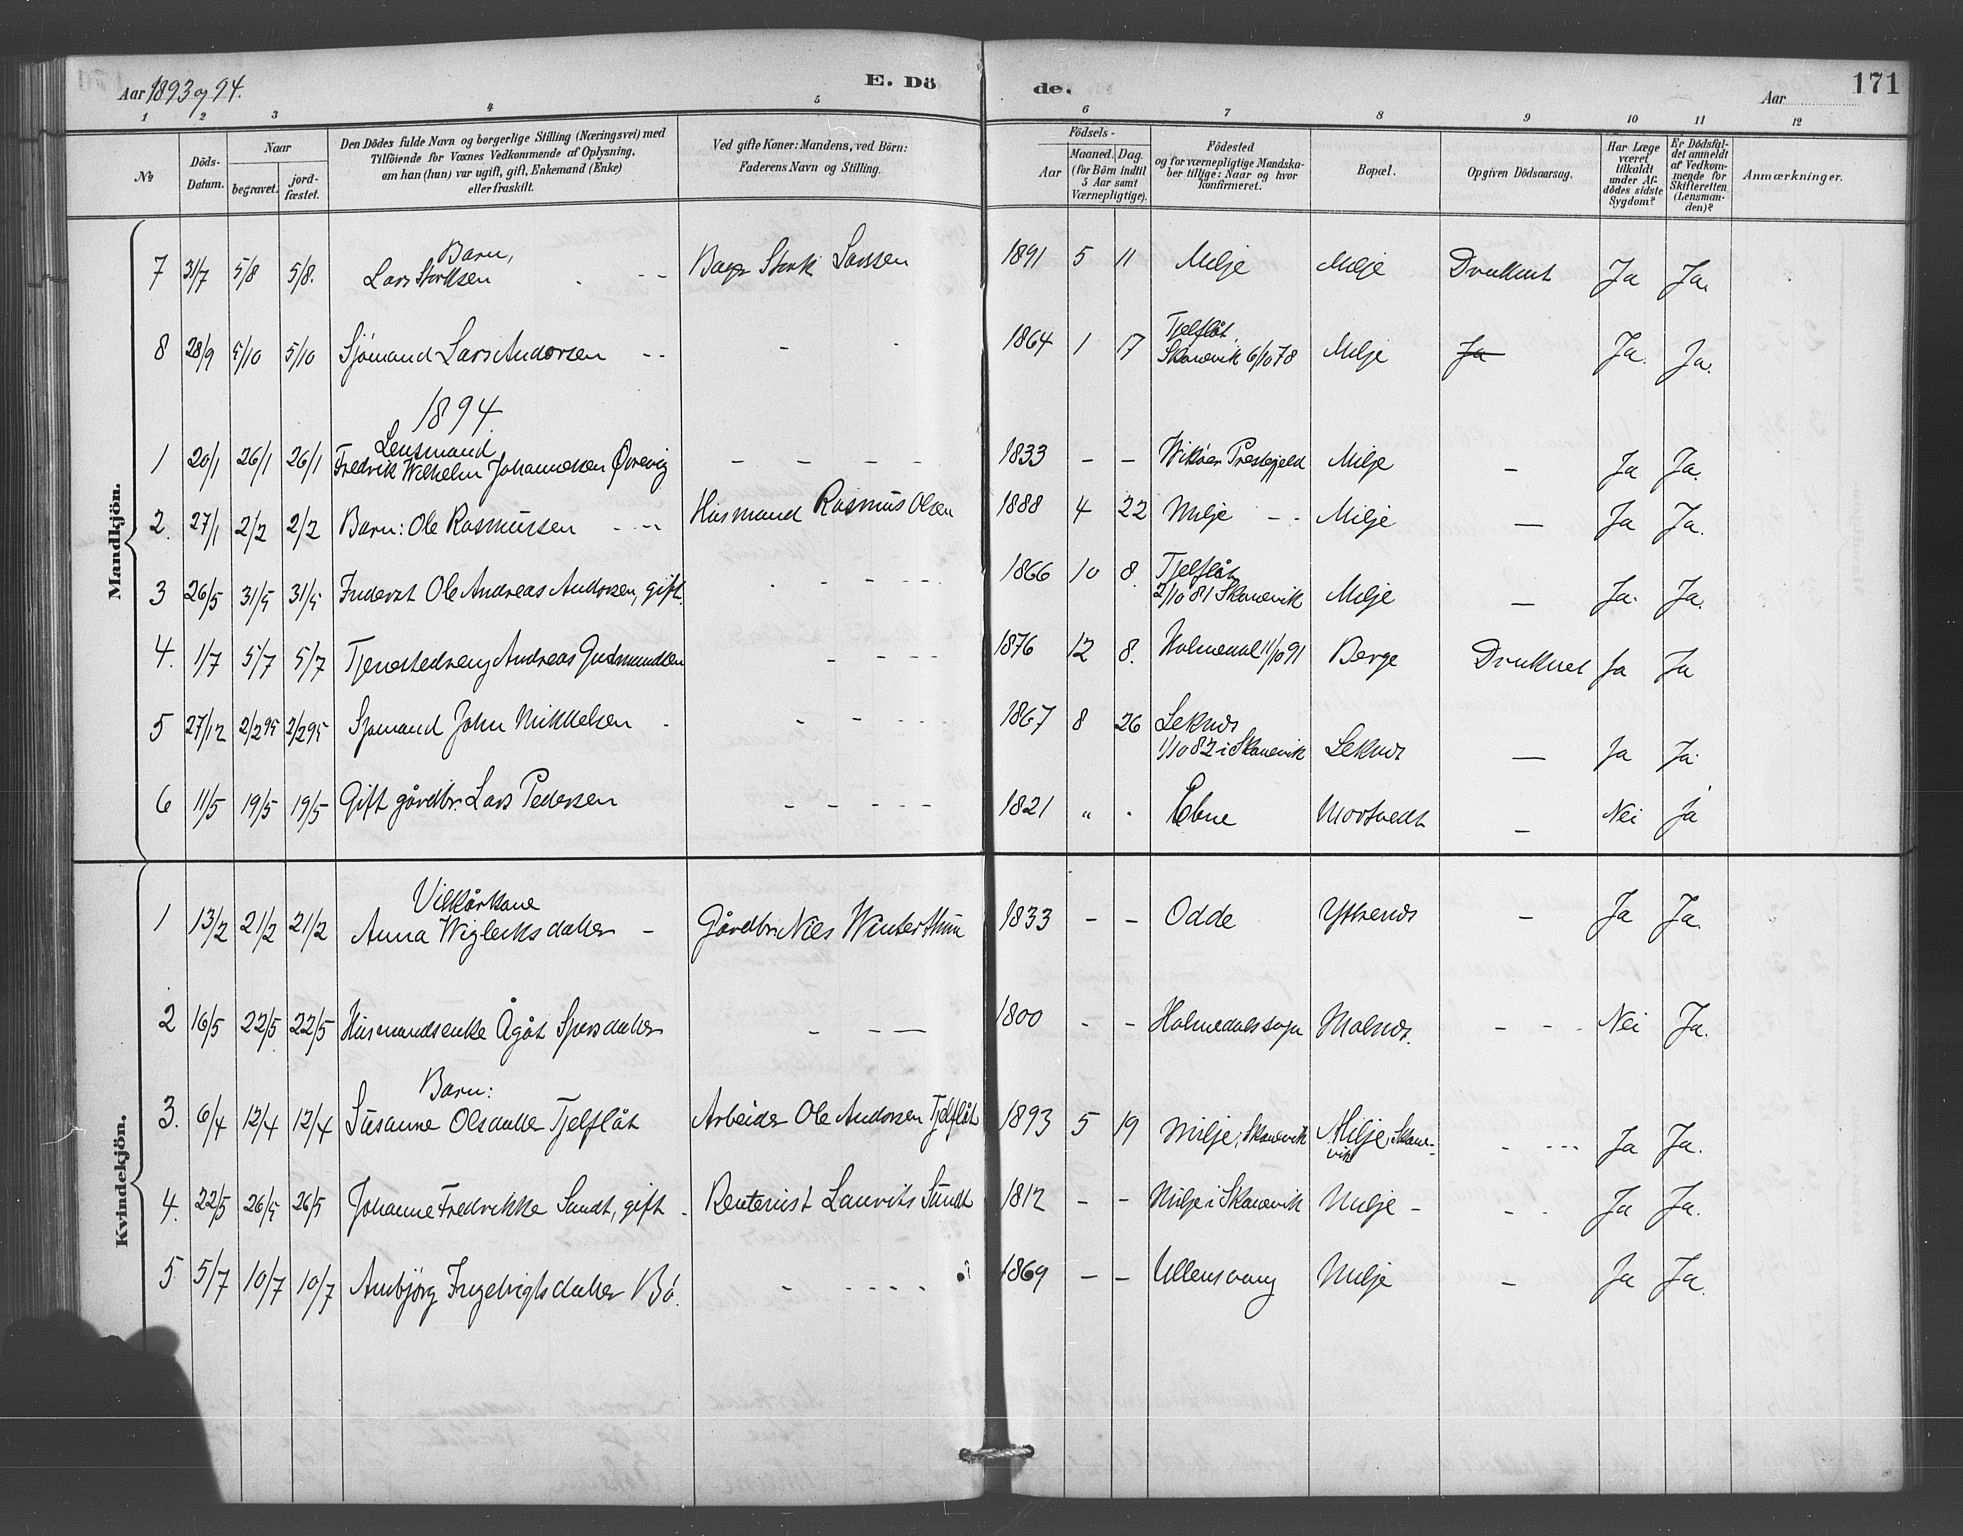 Aar 1893 og 94.
E. Dö
de.
Aar
171
1 2 3 4 5 6 7 8 9 10 11 12
№
Döds-
Datum.
Naar
begravet.
jord-
fæstet.
Den Dödes fulde Navn og borgerlige Stilling (Næringsvei) med
Tilföiende for Voxnes Vedkommende af Oplysning,
om han (hun) var ugift, gift, Enkemand (Enke)
eller fraskilt.
Ved gifte Koner: Mandens, ved Börn:
Faderens Navn og Stilling.
Födsels-
Aar
Maaned. Dag.
(for Börn indtil
5 Aar samt
Værnepligtige).
Födested
og for værnepligtige Mandska-
ber tillige: Naar og hvor
konfirmeret.
Bopæl.
Opgiven Dödsaarsag.
Har Læge
været
tilkaldt
under Af-
dödes sidste
Sygdom?
Er Dödsfal-
det anmeldt
af Vedkom-
mende for
Skifteretten
(Lensman-
den)?
Anmærkninger.
Mandkjön.
Barn,
7 31/7 5/8 5/8. Lars Storksen - - Bager Stork Larssen 1891 5 11 Milje Milje Druknet Ja Ja.
Tjelflåt.
8 28/9 5/10 5/10 Sjömand Lars Andersen - - - - 1864 1 17 Skonevik 6/10 78 Milje Ja Ja. Ja.
1894.
Lensmand
1 20/1 26/1 26/1 Fredrik Wilhelm Johannessen Øvrevig - - - - 1833 - - Wikør Prestegjeld Milje - Ja Ja.
2. 27/1 2/2 2/2 Barn: Ole Rasmussen - - Husmand Rasmus Olsen 1888 4 22 Milje - - Milje - Ja Ja.
Tjelflåt
3 26/5 31/5 31/5 Inderst Ole Andreas Andersen, gift. - - - - 1866 10 8. 2/10 81 Skonevik Milje - Ja. Ja.
4. 1/7 5/7 5/7 Tjenestedreng Andreas Gudmundsen - - - - 1876 12 8. Holmedal 11/10 91 Berge Druknet Ja Ja
Leknes
5 27/12 2/2 95 2/2 95 Sjömand John Mikkelsen - - - - 1867 8 26 1/10 82 i Skonevik Leknes - Ja Ja.
6 11/5 19/5 19/5 Gift gårdbr. Lars Pedersen - - - - 1821 " - Ebne - Nei Ja
Kvindekjön.
Vilkårkone
1 13/2 21/2 21/2 Anna Wiglecksdatter - Gårdbr. Niels Winterthun 1833 - - Odde Ytrenes - Ja Ja.
2 16/5 22/5 22/5 Husmandsenke Ågåt Sjursdatter - - - 1800 - - Holmedals sogn Molnes. - - - Nei Ja.
Barn:
3. 6/4 12/4 12/4 Susanne Olsdatter Tjelflåt Arbeider Ole Andersen Tjelflåt 1893 5 19 Milje, Skonevik Milje, Skone-
vik - - - - Ja Ja.
4. 22/5 26/5 26/5 Johanne Fredrikke Sundt, gift - Rentenist Lauvits Sundt 1812 - - Milje i Skonevik Milje - - - Ja Ja.
5 5/7 10/7 10/7 Anbjörg Ingebrigtsdatter Bö. - - - - - 1869 - - Ullensvang Milje - Ja Ja.